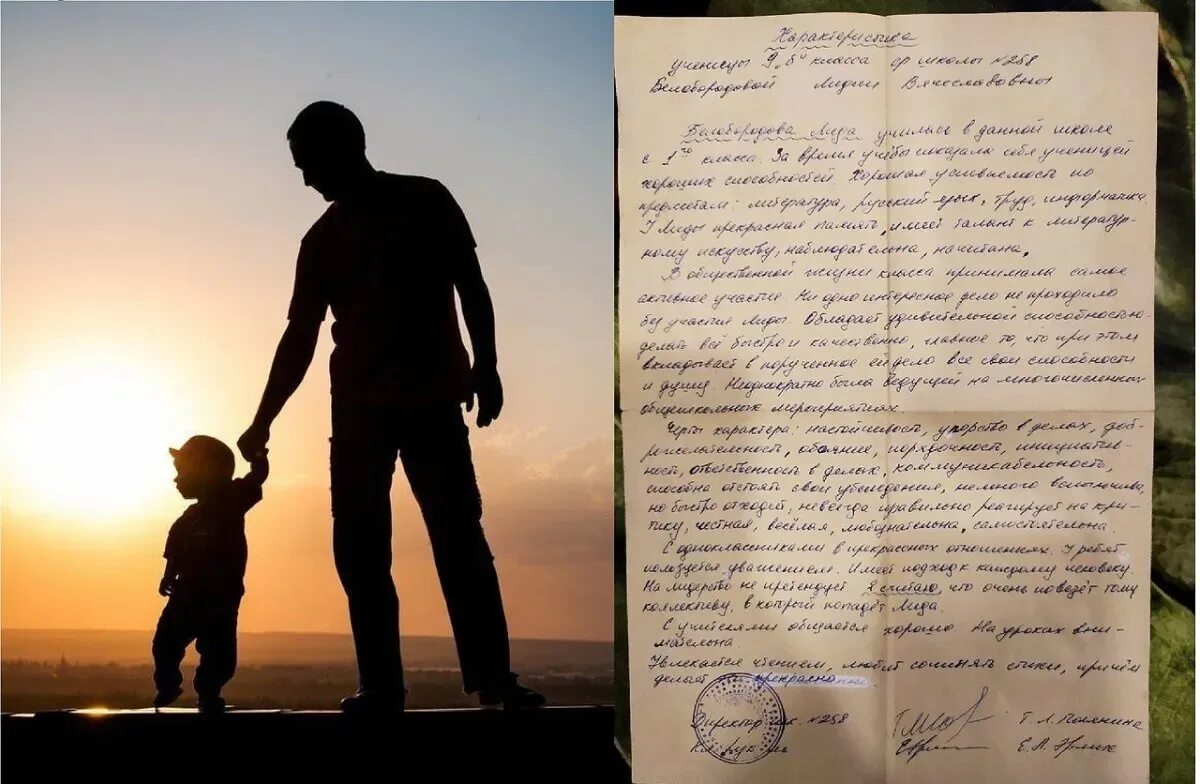 Характеристика
ученицы 9 „б" класса ср школы №258
Белобородовой Лидии Вячеславовны
Белобородова Лида училась в данной школе
с 1го класса. За время учёбы показала себя ученицей
хороших способностей. Хорошая успеваемость по
предметам: литература, русский язык, труд, информатика.
У Лиды прекрасная память, имеет талант к литератур-
ному искусству, наблюдательна, начитана.
В общественной жизни класса принимала самое
активное участие. Ни одно интересное дело не проходило
без участия Лиды. Обладает удивительной способностью
делать всё быстро и качественно, главное то, что при этом
вкладывает в порученное ей дело все свои способности
и душу. Неоднократно была ведущей на многочисленных
общешкольных мероприятиях.
Черты характера: настойчивость, упорство в делах, доб-
рожелательность, обаяние, порядочность, инициатив-
ность, ответственность в делах, коммуникабельность,
способна отстоять свои убеждения, немного вспыльчива,
но быстро отходит, не всегда правильно реагирует на кри-
тику, честная, весёлая, любознательна, самостоятельна.
С одноклассниками в прекрасных отношениях. У ребят
пользуется уважением. Имеет подход к каждому человеку.
На лидерство не претендует. Я считаю, что очень повезёт тому
коллективу, в который попадёт Лида.
С учителями общается хорошо. На уроках вни-
мательна.
Увлекается чтением, любит сочинять стихи, причём
делает прекрасно
Директор шк. №258 Т.Л.
Кл. рук-ль Е.А.